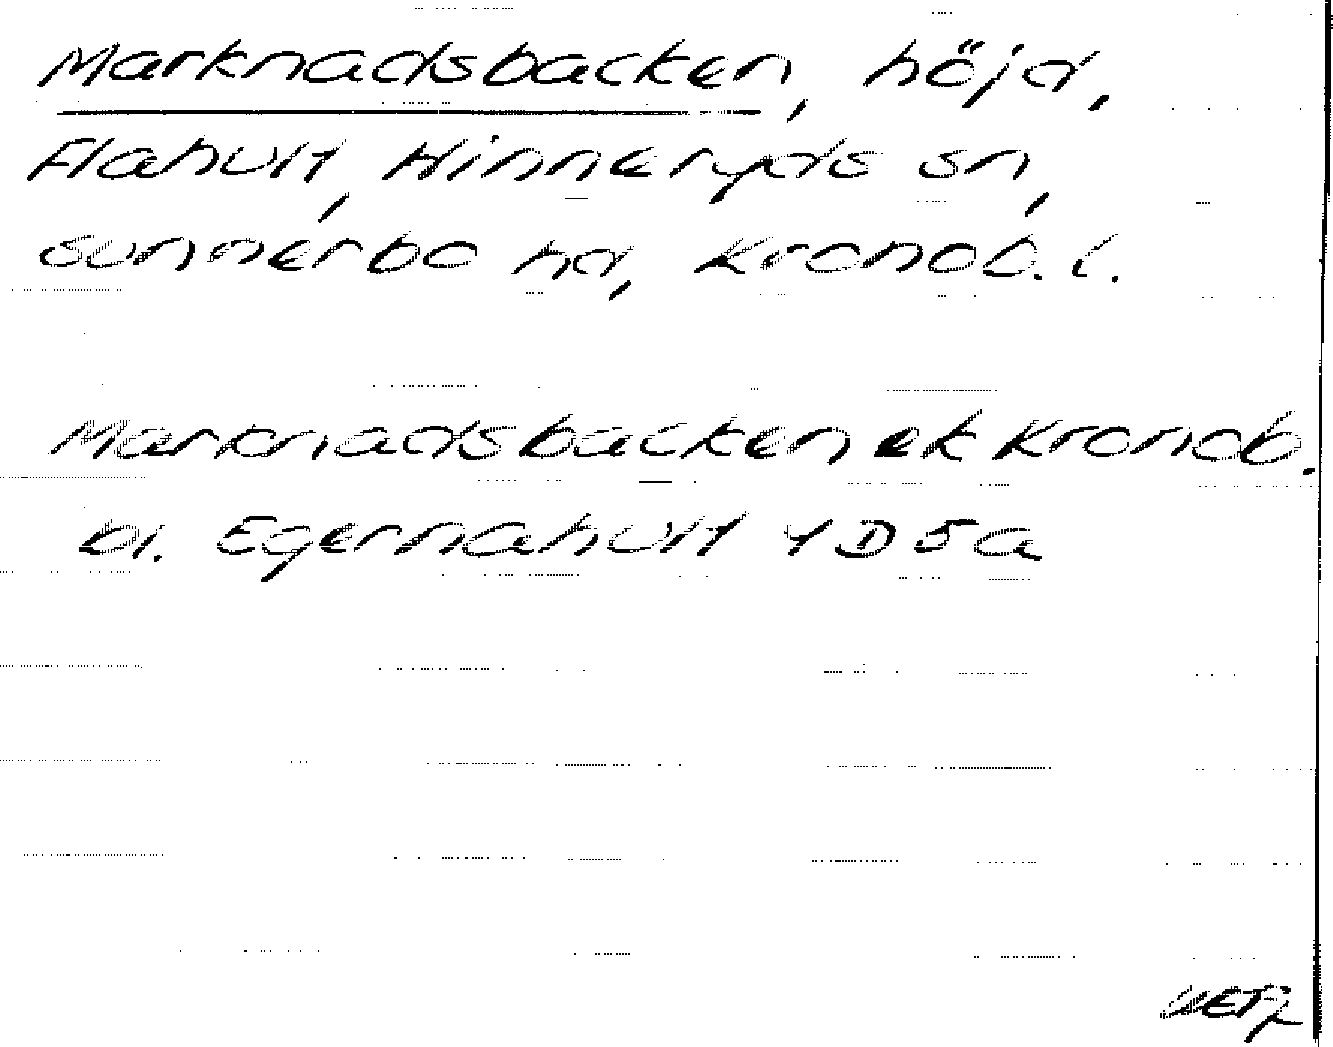 Marknadsbacken, höjd,
Flahult, Hinneryds sn,
Sunnerbo hd, Kronob. l.
Marknadsbacken ek Kronob.
bl. Egernahult 4D5a